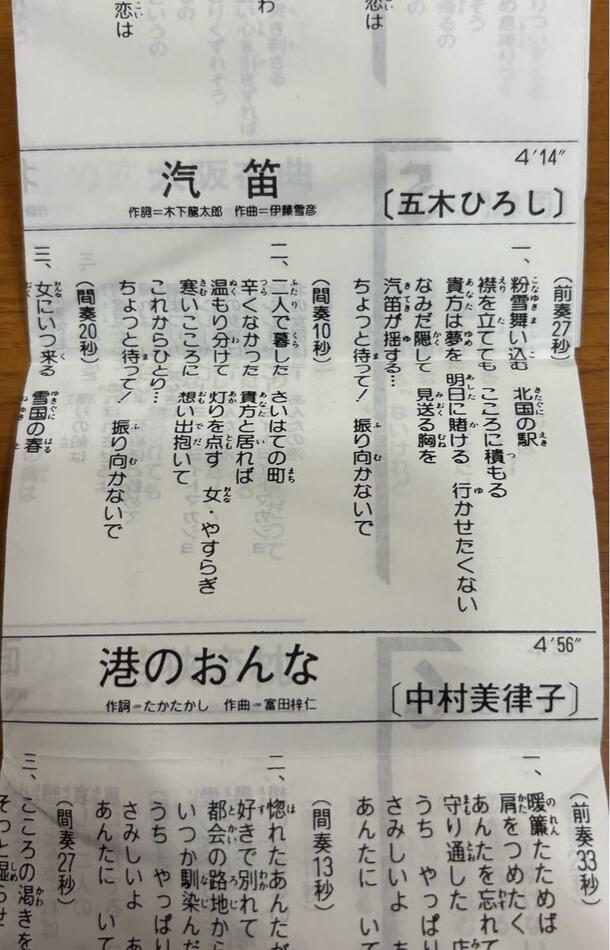 恋は
恋は
4′14″
汽笛
作詞＝木下龍太郎 作曲＝伊藤雪彦
〔五木ひろし〕
（前奏27秒）
一、粉雪舞い込む 北国の駅
襟を立てても こころに積もる
貴方は夢を 明日に賭ける 行かせたくない
なみだ隠して 見送る胸を
汽笛が揺する…
ちょっと待って! 振り向かないで
（間奏10秒）
二、二人で暮した さいはての町
辛くなかった 貴方と居れば
温もり分けて 灯りを点す 女・やすらぎ
寒いこころに 想い出抱いて
これからひとり…
ちょっと待って! 振り向かないで
（間奏20秒）
三、女にいつ来る 雪国の春
4′56″
港のおんな
作詞＝たかたかし 作曲＝富田梓仁
〔中村美律子〕
（前奏33秒）
一、暖簾たためば
肩をつめたく
あんたを忘れて
守り通した
うち やっぱり
さみしいよ あ
あんたに いて
（間奏13秒）
二、惚れたあんたが
好きで別れて
都会の路地から
いつか馴染んだ
うち やっぱり
さみしいよ あ
あんたに いて
（間奏27秒）
三、こころの渇きを
そっと湿らせ